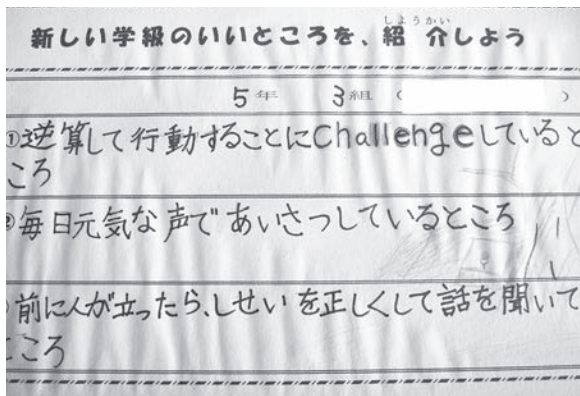 しょうかい
新しい学級のいいところを、紹介しよう
5年 3組 ( )
①逆算して行動することにchallengeしていると
ころ
②毎日元気な声であいさつしているところ
前に人が立ったら、しせいを正しくして話を聞いて
ころ